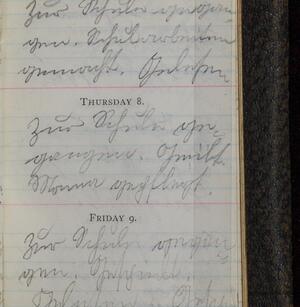 Zur Schule gegan-
gen. Schularbeiten
gemacht. Gelesen.
THURSDAY 8.
Zur Schule ge-
gangen.
Mama gepflegt.
FRIDAY 9.
Zur Schule gegan-
gen.